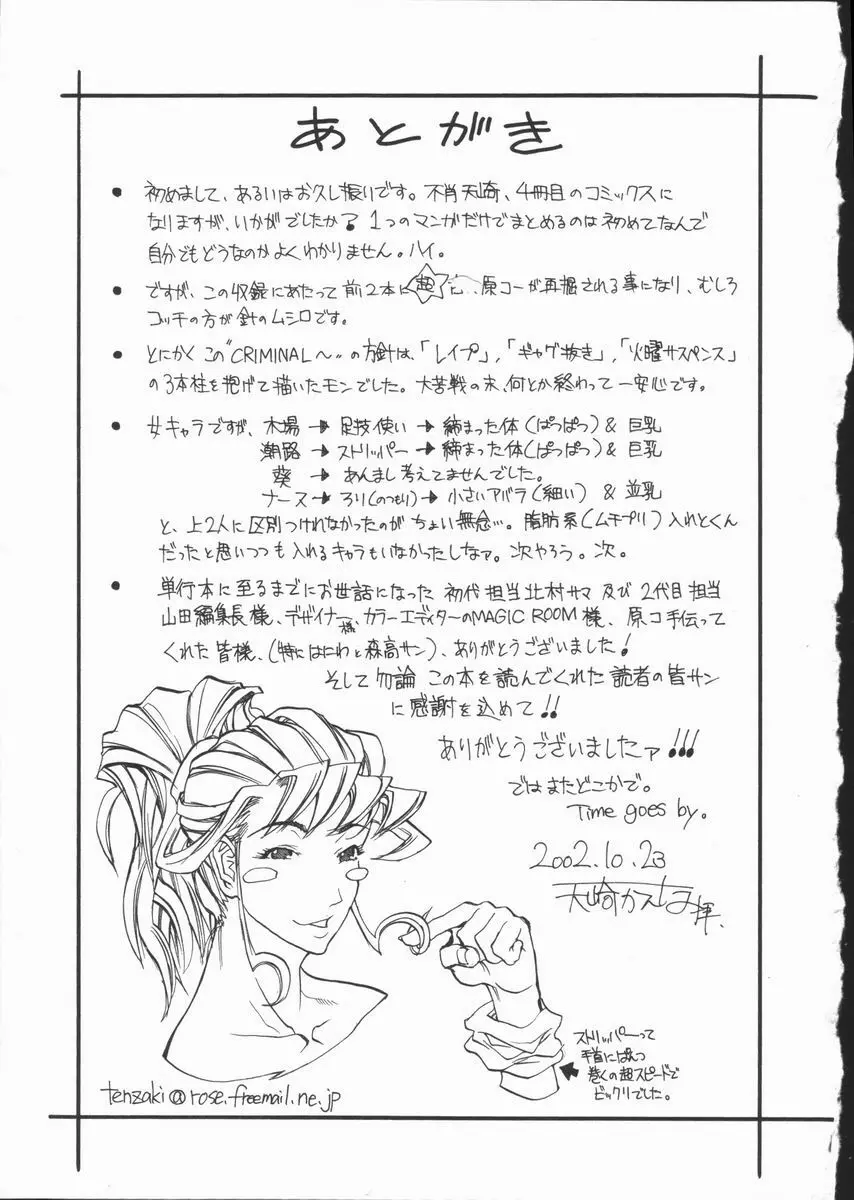 あとがき
● 初めまして、あるいはお久し振りです。不肖天崎、4冊目のコミックスに
なりますが、いかがでしたか？1つのマンガだけでまとめるのは初めてなんで
自分でもどうなのかよくわかりません。ハイ。
● ですが、この収録にあたって前2本に超 原コーが再掘される事になり、むしろ
コッチの方が針のムシロです。
● とにかくこの“CRIMINAL〜”の方針は、「レイプ」,「ギャグ抜き」,「火曜サスペンス」
の3本柱を掲げて描いたモンでした。大苦戦の末、何とか終わって一安心です。
● 女キャラですが、木場→足技使い→締まった体(ぱっぱつ)&巨乳
潮路→ストリッパー→締まった体(ぱっぱつ)&巨乳
葵→あんまし考えてませんでした。
ナース→ろり(のつもり)→小さいアバラ(細い)&並乳
と、上2人に区別つけれなかったのがちょい無念…。脂肪系(ムチプリ)入れとくん
だったと思いつつも入れるキャラもいなかったしなァ。次やろう。次。
● 単行本に至るまでにお世話になった初代担当北村サマ及び2代目担当
山田編集長様、デザイナー様、カラーエディターのMAGIC ROOM様、原コ手伝って
くれた皆様、(特にはにわと森高サン)、ありがとうございました！
そして勿論この本を読んでくれた読者の皆サン
に感謝を込めて!!
ありがとうございましたァ!!!
ではまたどこかで。
Time goes by.
2002.10.23
天崎かんな拝.
ストリッパーって
手首にぱんつ
巻くの超スピードで
ビックリでした。
tenzaki@rose.freemail.ne.jp